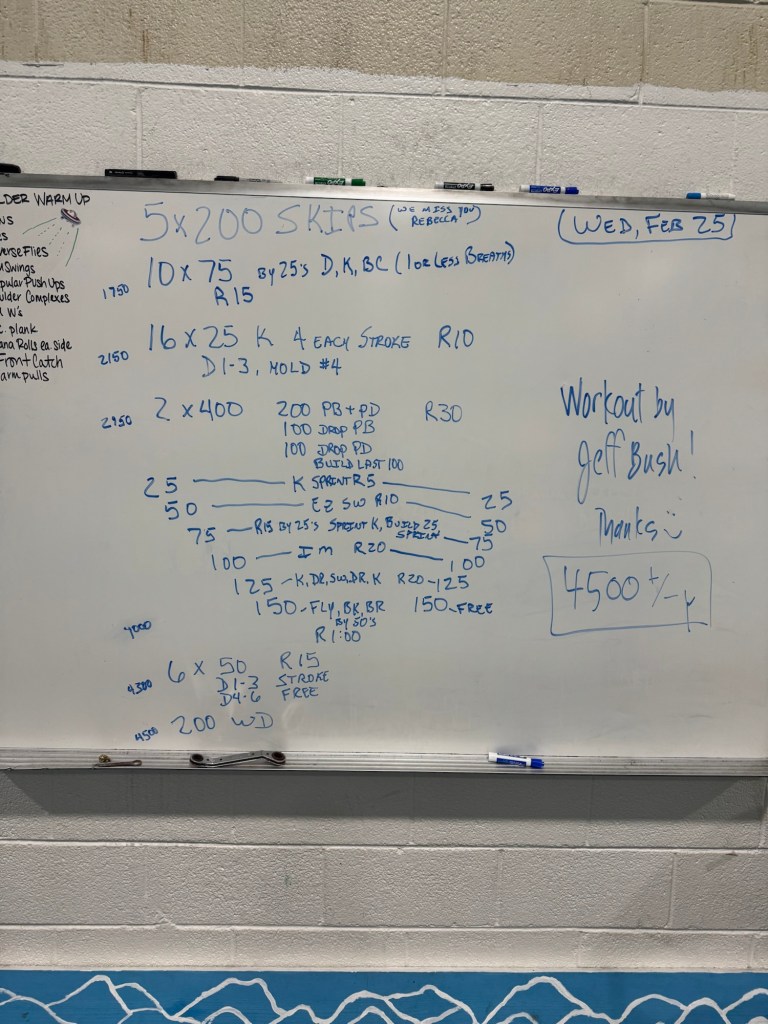 LDER WARM UP
verse Flies
Swings
pular Push Ups
ulder Complexes
W's
plank
ana Rolls ea. side
Front Catch
arm pulls
5 x 200 SKIPS (WE MISS YOU REBECCA)
(WED, FEB 25)
1750 10 x 75 BY 25'S D, K, BC (1 OR LESS BREATHS)
R15
2150 16 x 25 K 4 EACH STROKE R10
D1-3, HOLD #4
2950 2 x 400 200 PB + PD R30
100 DROP PB
100 DROP PD
BUILD LAST 100
25 K SPRINT R5 25
50 EZ SW R10 50
75 R15 BY 25'S SPRINT K, BUILD 25 SPRINT 75
100 IM R20 100
125 - K, DR, SW, DR, K R20 - 125
150 - FLY, BK, BR 150 - FREE
BY 50'S
4000 R1:00
4300 6 x 50 R15
D1-3 STROKE
D4-6 FREE
4500 200 WD
Workout by
Jeff Bush!
Thanks
4500 +/- Y
expo
expo
expo